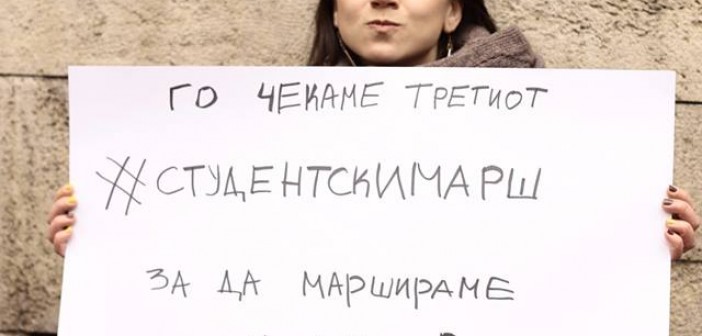 ГО ЧЕКАМЕ ТРЕТИОТ
#СТУДЕНТСКИМАРШ
ЗА ДА МАРШИРАМЕ